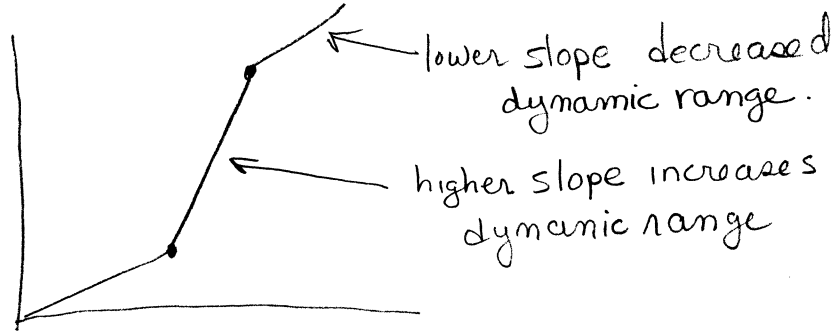 lower slope decreased
dynamic range.
higher slope increases
dynanic range